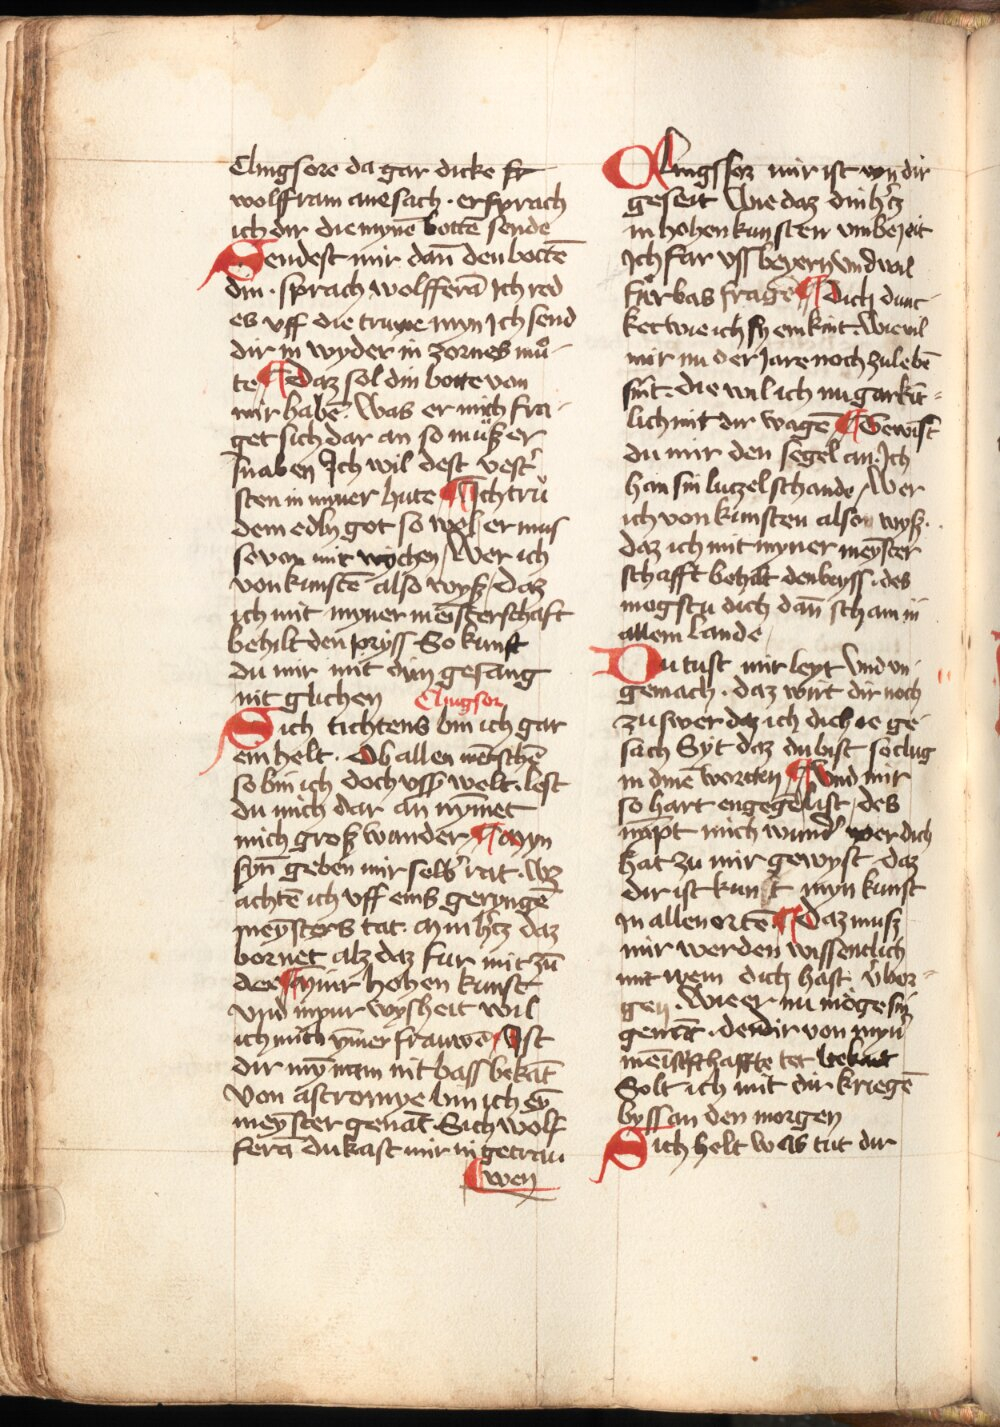 Clingsore da gar dicke
wolffram ane sach · er sprach
ich dir die mynē bottē sende
Sendest mir dan̄ den bottē
din · sprach wolfferā Ich red
es vff die truwe myn Ich send
dir in wyder in zornes mů-
te ¶ Daz sol din botte von
mir habē. Was er mich fra-
get sich dar an so můsz er
snaben Ich wil dest vest
sten in myner hute ¶ Ich trů
dem edlń got so wol er mus
se von mir wychen / Wer ich
von kunstē also wysz / Daz
ich mit myner meisterschaft
behilt den pryss So kunst
du mir mit dim gesang
nit glichen
Clingsor
Sich tichtens bin ich gar
ein helt · Ob allen mēschē
so bin ich doch vssz welt · lest
du mich dar an nym̄et
mich grosz wunder ¶ Myn
syn̄ geben mir selbʼ rat · Wz
achtē ich vff eins geryngē
meysters tat · Min hʼcz daz
bornet alz daz fur mit zū
der ¶ Myner hohen kunst
vnd myner wysheit wil
ich mich ym̄er frauwē ¶ Ist
dir myn nam nit bass bekāt
Von astromye bin ich eyn̄
meyster genāt · Sich wolf
ferā du kast mir in getrau
wen
Clingssor mir ist von dir
geseit Wie daz din hʼcz
in hohen kunsten vmbe jeit
Ich far vss beyern vnd wil
fůrbas fragē ¶ Dich dunc-
ket wie ich sy ein kint · Wievil
mir nu der Jare noch zulebē
sint · die wil ich nu gar kīt=
lich mit dir wagē ¶ Gewist
du mir den segel an · Ich
han sin luczel schande / Wer
ich von kunsten also wysz ·
daz ich mit myner meyster
schafft behalt den bryss · des
mogstu dich dan̄ scham in
allem lande
Du tust mir leyt Vnd vn-
gemach · daz wirt dir noch
zu swer daz ich dich ie ge-
sach Syt daz du bist so clug
in dinē worten ¶ Vnd mir
so hart engegē bist / des
nȳpt mich wundʼ wer dich
hat zu mir gewyst daz
dir ist kunt myn kunst
In allen orten ¶ Daz musz
mir werden wissentlich
mit wem dich hast · vbor-
gen · Wie er nu möge sin
genāt · der dir von mynʼ
meistʼschaffte tet bekāt
Solt ich mit dir kriegē
byss an den morgen
Sich helt was tut dir